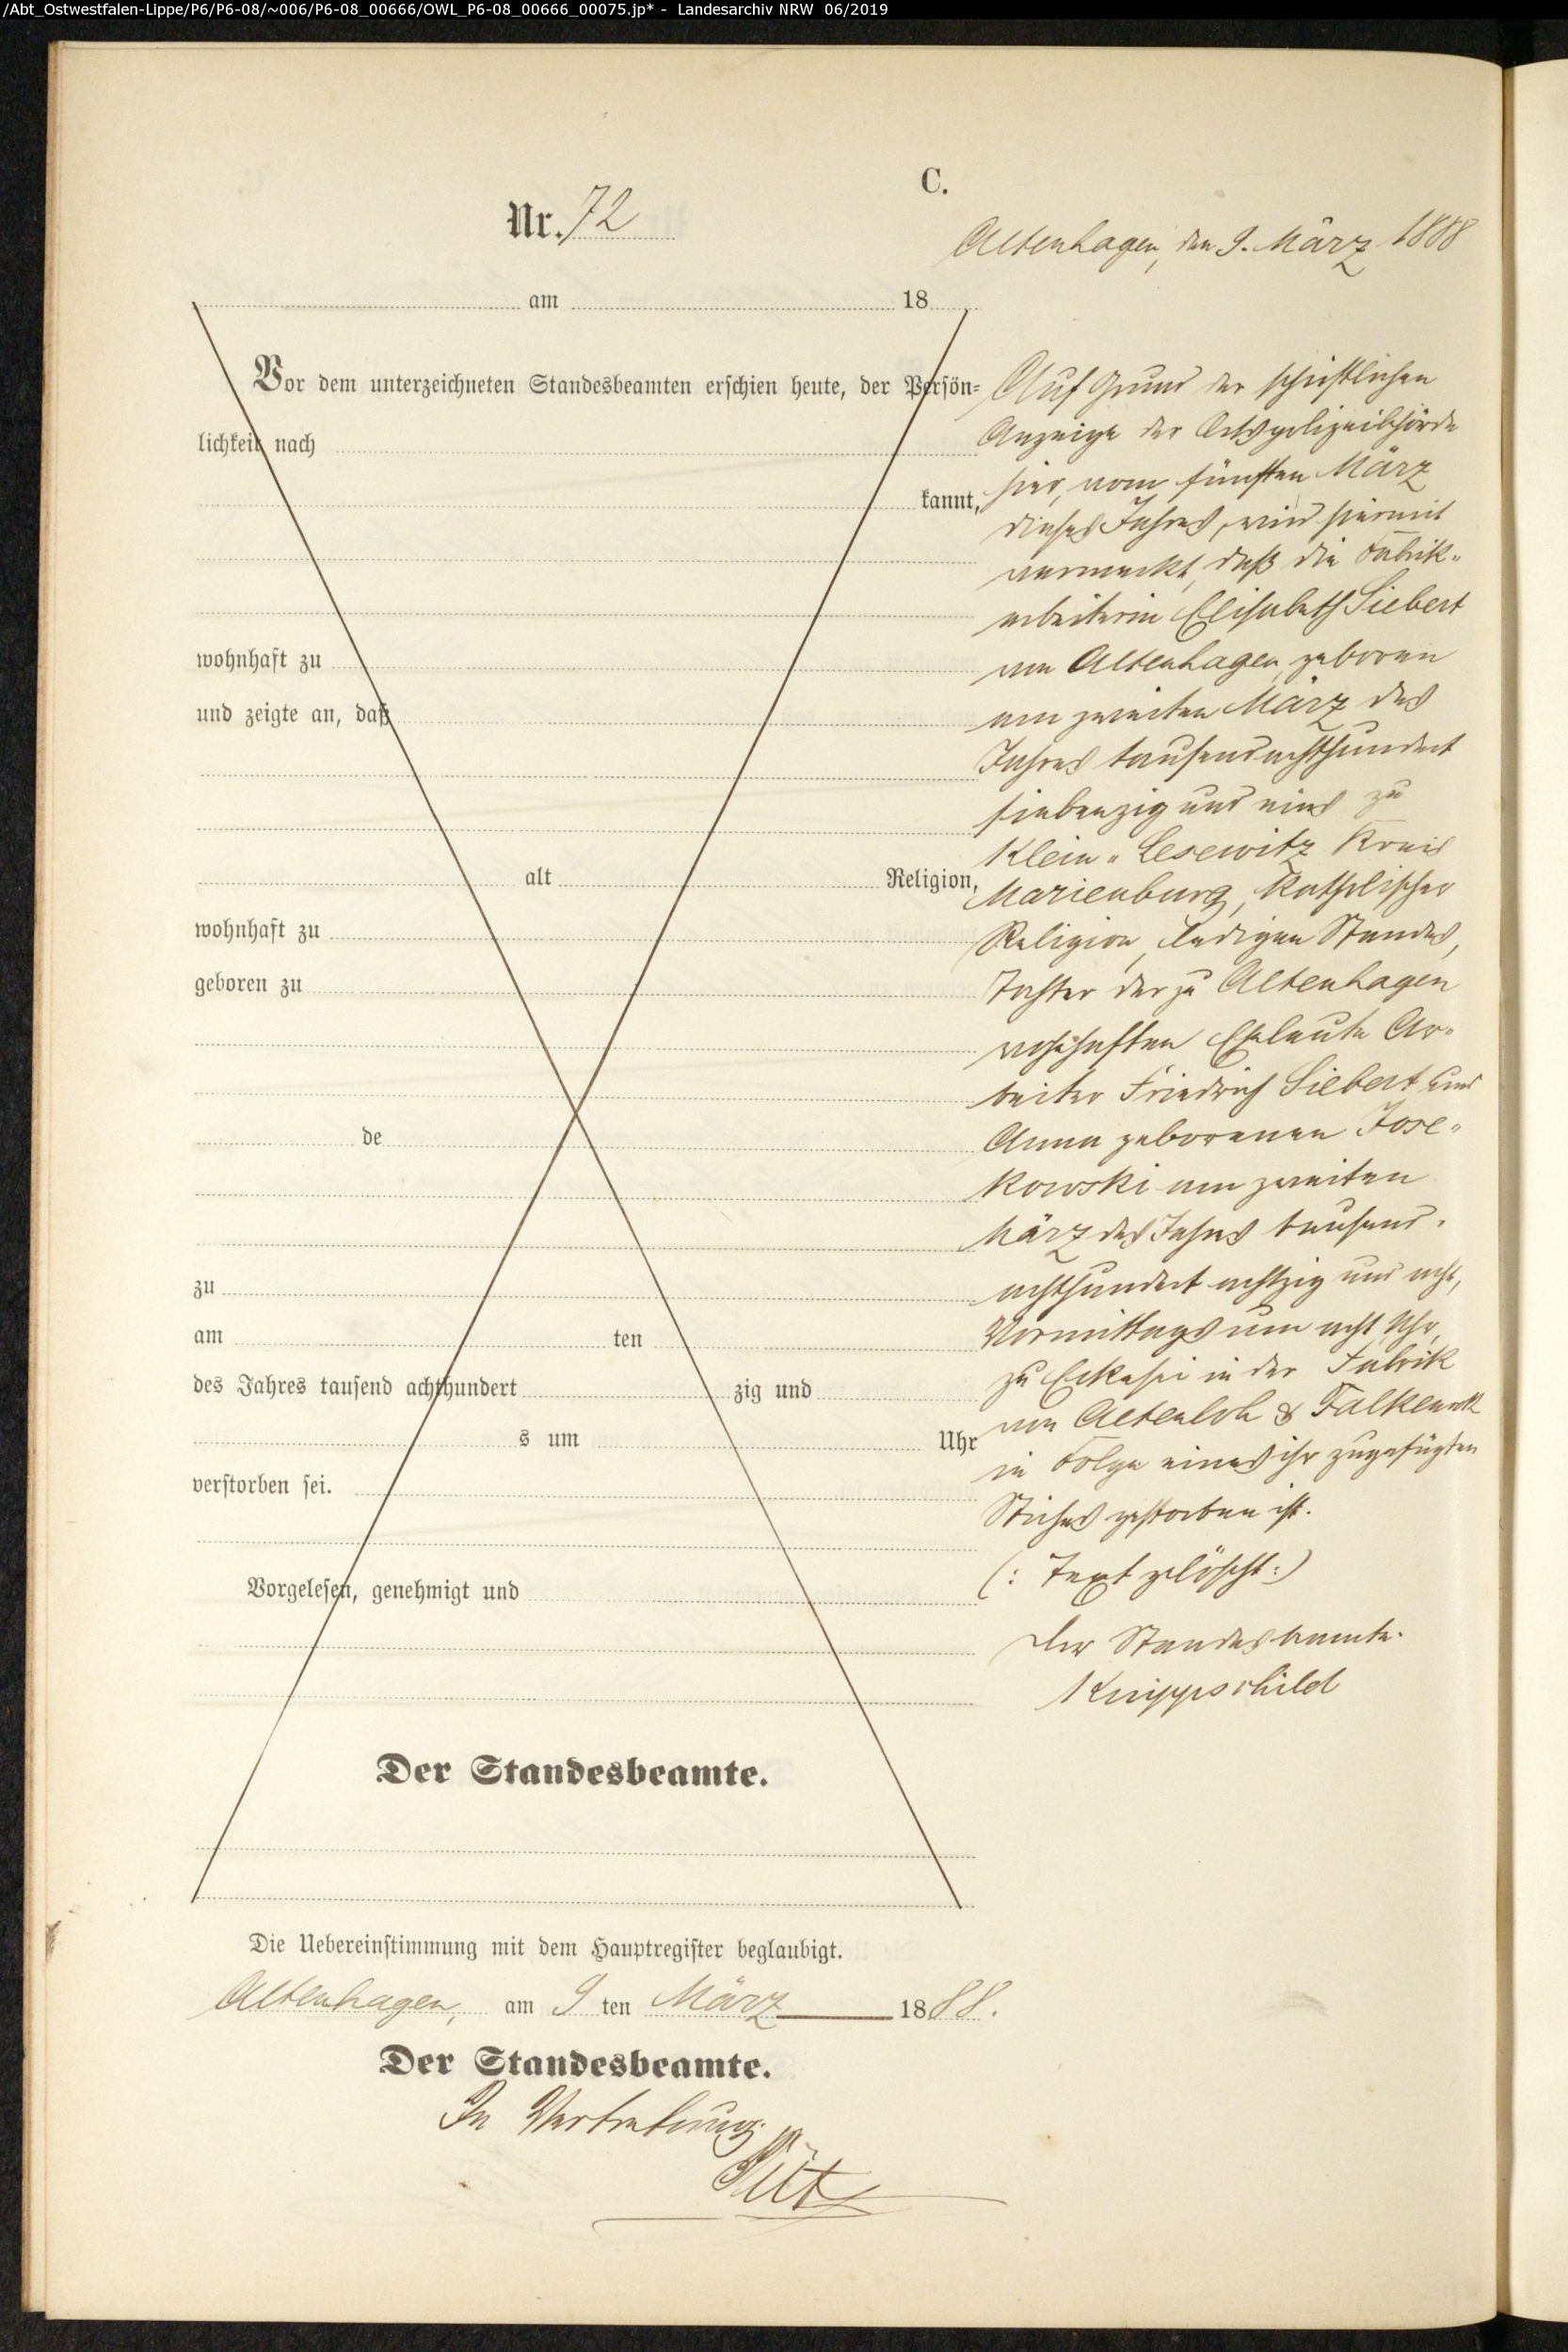 /Abt_Ostwestfalen-Lippe/P6/P6-08/~006/P6-08_00666/OWL_P6-08_00666_00075.jp* - Landesarchiv NRW 06/2019
C.
Nr. 72
Altenhagen, den 9. März 1888
am 18
Vor dem unterzeichneten Standesbeamten erschien heute, der Persön=
lichkeit nach
kannt,
wohnhaft zu
und zeigte an, daß
alt Religion,
wohnhaft zu
geboren zu
de
zu
am ten
des Jahres tausend achthundert zig und
s um Uhr
verstorben sei.
Vorgelesen, genehmigt und
Der Standesbeamte.
Auf Grund der schriftlichen
Anzeige der Ortspolizeibehörde
hier, vom fünften März
dieses Jahres, wird hiermit
vermerkt, daß die Fabrik-
arbeiterin Elisabeth Siebert
von Altenhagen, geboren
am zweiten März des
Jahres tausendachthundert
siebenzig und eins zu
Klein-Lesewitz Kreis
Marienburg, katholischer
Religion, ledigen Standes,
Tochter der zu Altenhagen
wohnhaften Eheleute Ar-
beiter Friedrich Siebert und
Anna geborenen Jose-
kowski am zweiten
März des Jahres tausend-
achthundert achtzig und acht,
Vormittags um acht Uhr,
zu Eckesei in der Fabrik
von Altenloh & Falkenroth
in Folge eines ihr zugefügten
Stiches gestorben ist.
(: Text gelöscht :)
Der Standesbeamte.
Knippschild
Die Uebereinstimmung mit dem Hauptregister beglaubigt.
Altenhagen, am 9 ten März 1888.
Der Standesbeamte.
In Vertretung: